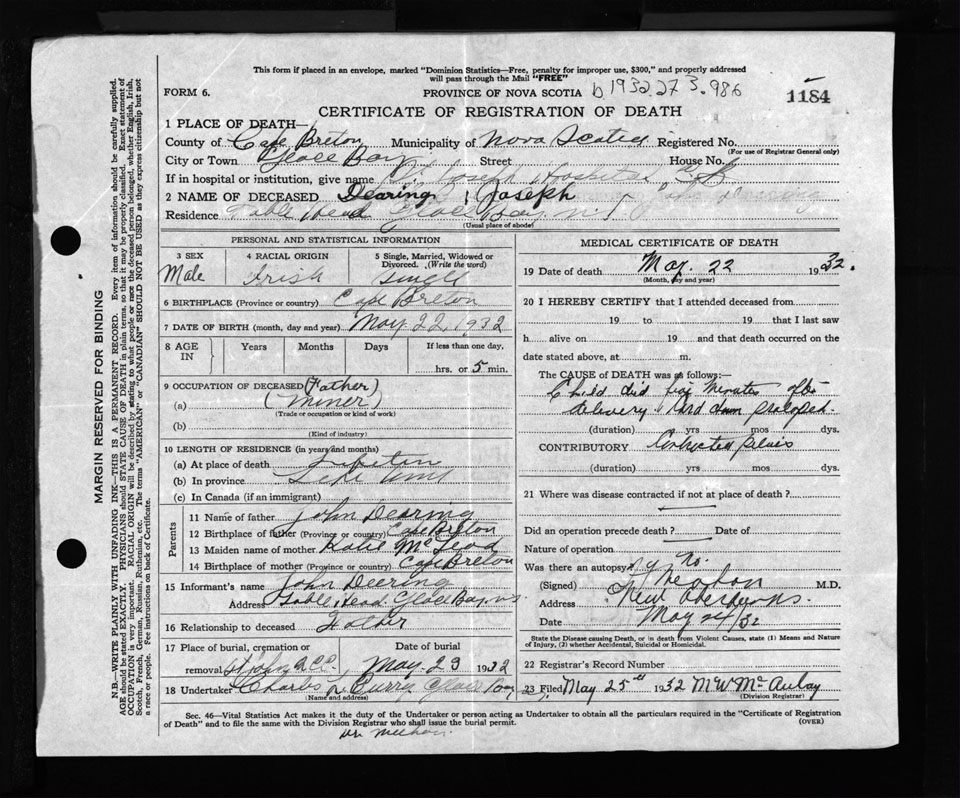 This form if placed in an envelope, marked "Dominion Statistics—Free, penalty for improper use, $300," and properly addressed
will pass through the Mail "FREE"
FORM 6. PROVINCE OF NOVA SCOTIA b 1932.27 3.986 1184
CERTIFICATE OF REGISTRATION OF DEATH
1 PLACE OF DEATH—
County of Cape Breton Municipality of Nova Scotia Registered No.
(For use of Registrar General only)
City or Town Glace Bay Street House No.
If in hospital or institution, give name St. Joseph Hospital
2 NAME OF DECEASED Dearing, Joseph
Residence Table Head Glace Bay N.S.
(Usual place of abode)
PERSONAL AND STATISTICAL INFORMATION
3 SEX 4 RACIAL ORIGIN 5 Single, Married, Widowed or Divorced. (Write the word)
Male Irish Single
6 BIRTHPLACE (Province or country) Cape Breton
7 DATE OF BIRTH (month, day and year) May 22, 1932
8 AGE IN Years Months Days If less than one day,
hrs. or 5 min.
9 OCCUPATION OF DECEASED (Father)
(a) (Miner)
(Trade or occupation or kind of work)
(b)
(Kind of industry)
10 LENGTH OF RESIDENCE (in years and months)
(a) At place of death
(b) In province Life time
(c) In Canada (if an immigrant)
Parents
11 Name of father John Dearing
12 Birthplace of father (Province or country) Cape Breton
13 Maiden name of mother Katie McLeod
14 Birthplace of mother (Province or country) Cape Breton
15 Informant's name John Deering
Address Table Head Glace Bay N.S.
16 Relationship to deceased Father
17 Place of burial, cremation or removal Date of burial
May. 23 1932
18 Undertaker Charles L. Curry Glace Bay
(Name and address)
MEDICAL CERTIFICATE OF DEATH
19 Date of death May. 22 1932.
(Month, day and year)
20 I HEREBY CERTIFY that I attended deceased from
19 to 19 that I last saw
h alive on 19 and that death occurred on the
date stated above, at m.
The CAUSE OF DEATH was as follows:—
Child did Minutes after
delivery prolapsed.
(duration) yrs mos dys.
CONTRIBUTORY Contracted pelvis
(duration) yrs mos dys.
21 Where was disease contracted if not at place of death?
Did an operation precede death? Date of
Nature of operation
Was there an autopsy? No.
(Signed) M.D.
Address New Aberdeen N.S.
Date May 24/32
State the Disease causing Death, or in death from Violent Causes, state (1) Means and Nature
of Injury, (2) whether Accidental, Suicidal or Homicidal.
22 Registrar's Record Number
23 Filed May 25th 1932 M W McAulay
(Division Registrar)
Sec. 46—Vital Statistics Act makes it the duty of the Undertaker or person acting as Undertaker to obtain all the particulars required in the "Certificate of Registration
of Death" and to file the same with the Division Registrar who shall issue the burial permit. (OVER)
MARGIN RESERVED FOR BINDING
N.B.—WRITE PLAINLY WITH UNFADING INK—THIS IS A PERMANENT RECORD. Every item of information should be carefully supplied.
AGE should be stated EXACTLY. PHYSICIANS should STATE CAUSE OF DEATH in plain terms, so that it may be properly classified. Exact statement of
OCCUPATION is very important. RACIAL ORIGIN will be described by stating to what people or race the deceased person belonged, whether English, Irish,
Scotch, French, German, Russian, Ruthenian, etc. The terms "AMERICAN" or "CANADIAN" SHOULD NOT BE USED as they express citizenship but not
a race or people. See instructions on back of Certificate.